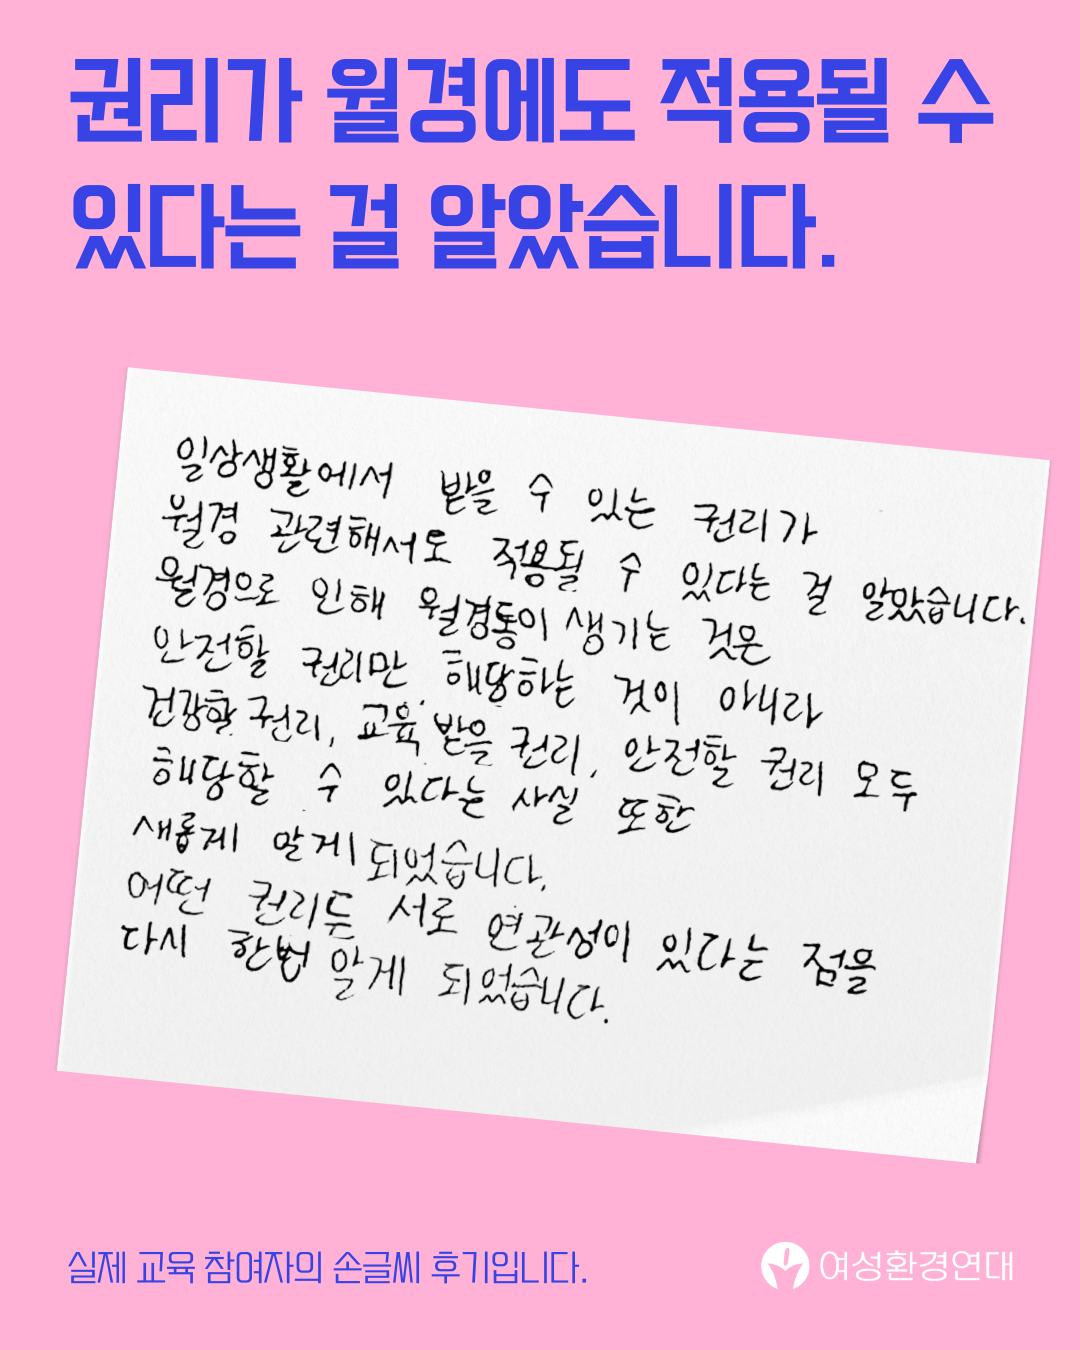 권리가 월경에도 적용될 수
있다는 걸 알았습니다.
일상생활에서 받을 수 있는 권리가
월경 관련해서도 적용될 수 있다는 걸 알았습니다.
월경으로 인해 월경통이 생기는 것은
안전할 권리만 해당하는 것이 아니라
건강할 권리, 교육 받을 권리, 안전할 권리 모두
해당할 수 있다는 사실 또한
새롭게 알게 되었습니다.
어떤 권리든 서로 연관성이 있다는 점을
다시 한번 알게 되었습니다.
실제 교육 참여자의 손글씨 후기입니다.
여성환경연대